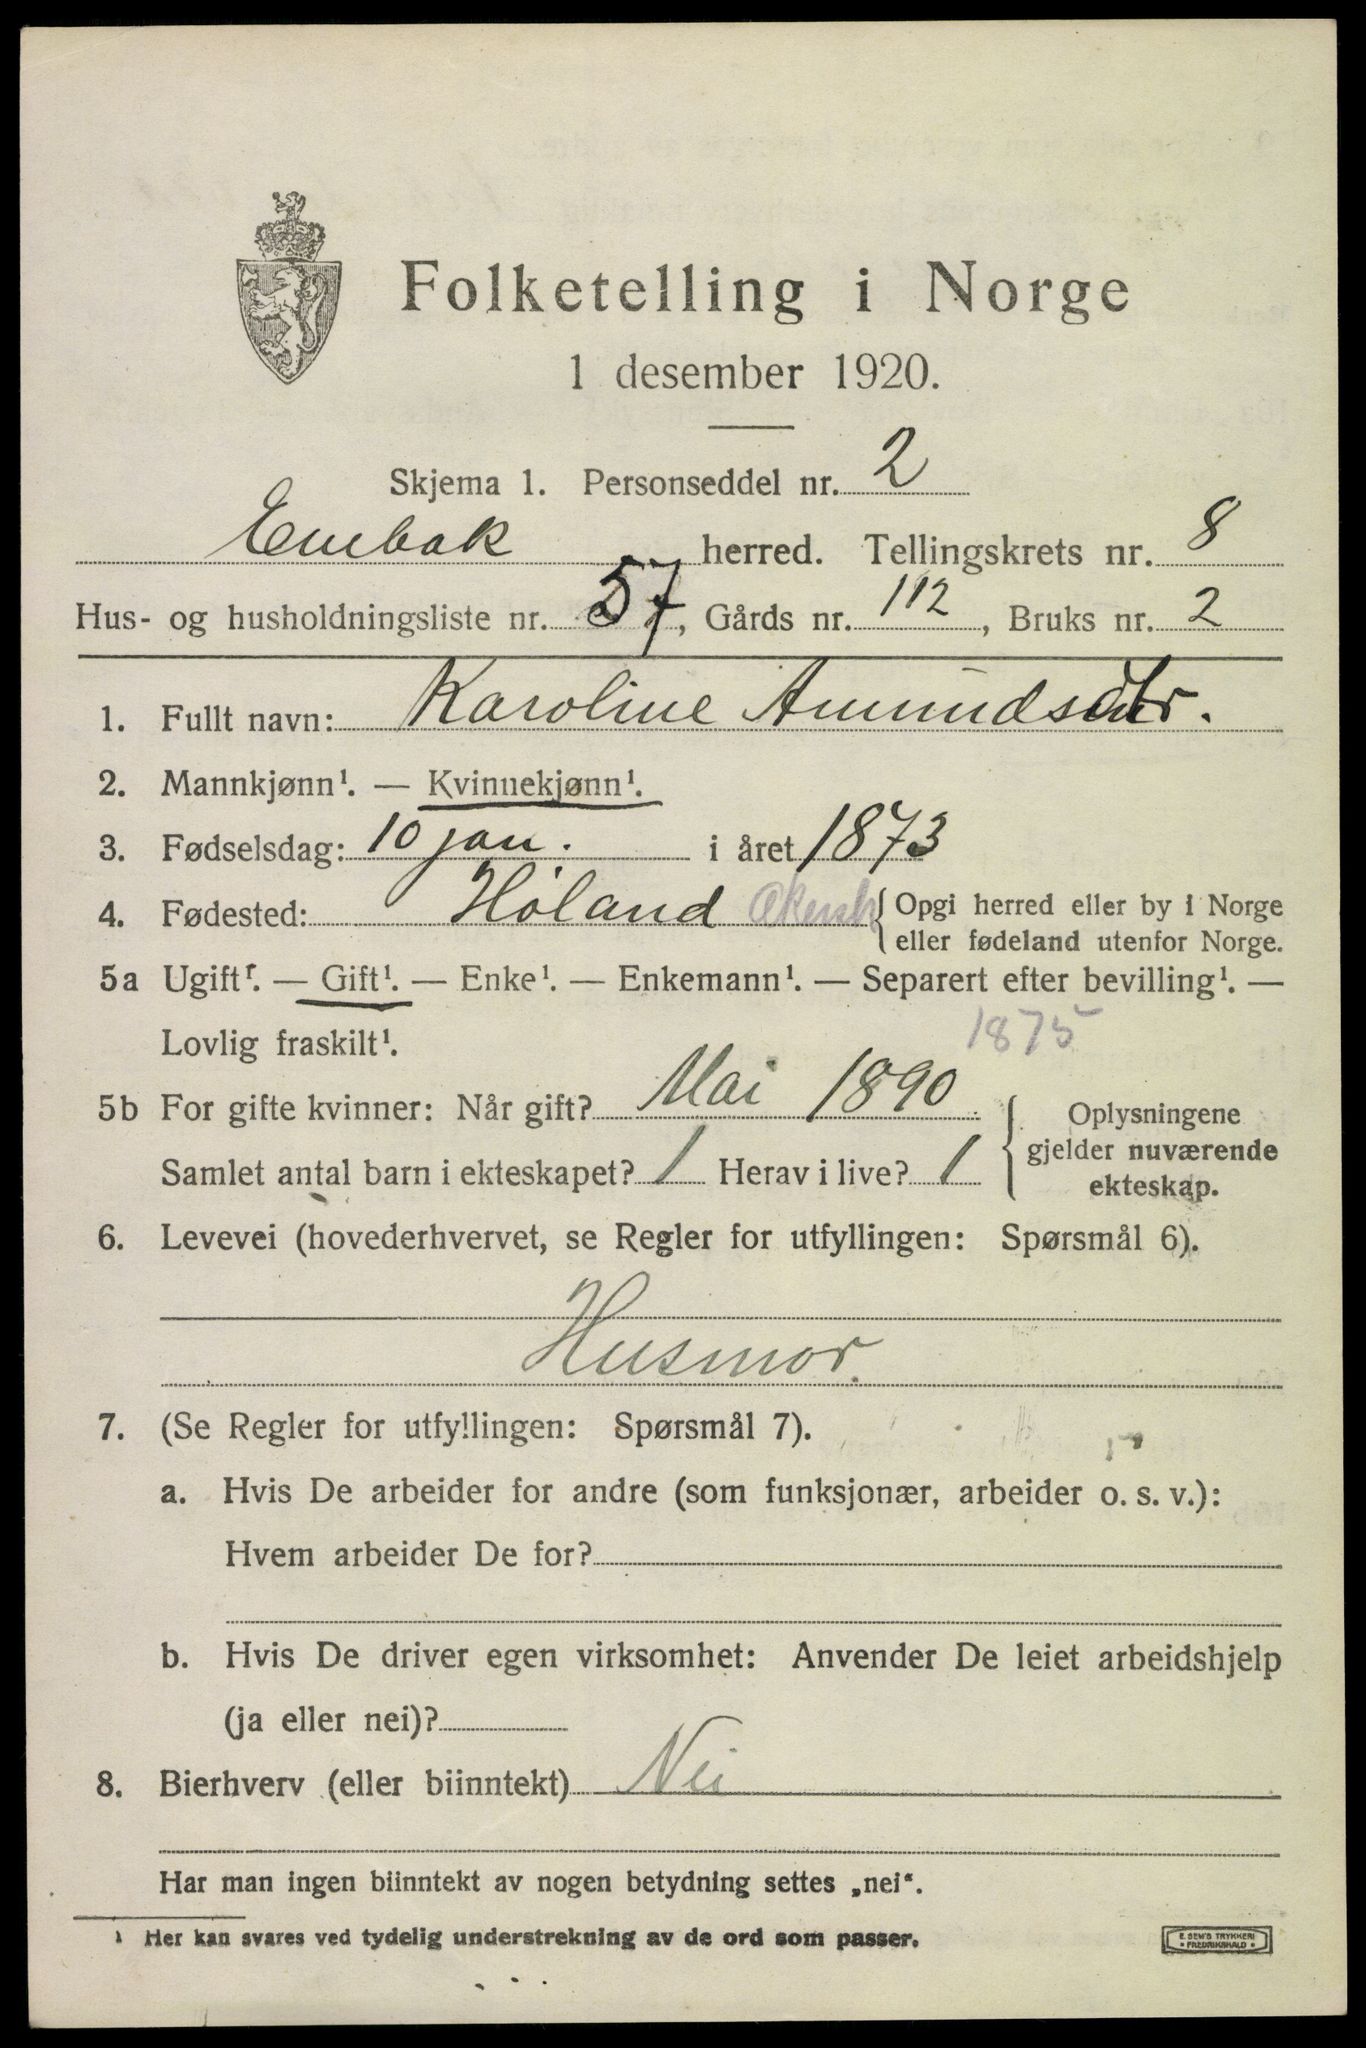 Folketelling i Norge
1 desember 1920.
Skjema 1. Personseddel nr. 2
Enebak herred. Tellingskrets nr. 8
Hus- og husholdningsliste nr. 57, Gårds nr. 112, Bruks nr. 2
1. Fullt navn: Karoline Amundsdtr.
2. Mannkjønn¹. — Kvinnekjønn¹.
3. Fødselsdag: 10 jan. i året 1873
4. Fødested: Høland Akersh { Opgi herred eller by i Norge
eller fødeland utenfor Norge.
5a Ugift¹. — Gift¹. — Enke¹. — Enkemann¹. — Separert efter bevilling¹. —
Lovlig fraskilt¹.
1875
5b For gifte kvinner: Når gift? Mai 1890
Samlet antal barn i ekteskapet? 1 Herav i live? 1
Oplysningene
gjelder nuværende
ekteskap.
6. Levevei (hovederhvervet, se Regler for utfyllingen: Spørsmål 6).
Husmor.
7. (Se Regler for utfyllingen: Spørsmål 7).
a. Hvis De arbeider for andre (som funksjonær, arbeider o. s. v.):
Hvem arbeider De for?
b. Hvis De driver egen virksomhet: Anvender De leiet arbeidshjelp
(ja eller nei)?
8. Bierhverv (eller biinntekt) Nei
Har man ingen biinntekt av nogen betydning settes „nei“.
¹ Her kan svares ved tydelig understrekning av de ord som passer.
E. SEM'S TRYKKERI
FREDRIKSHALD